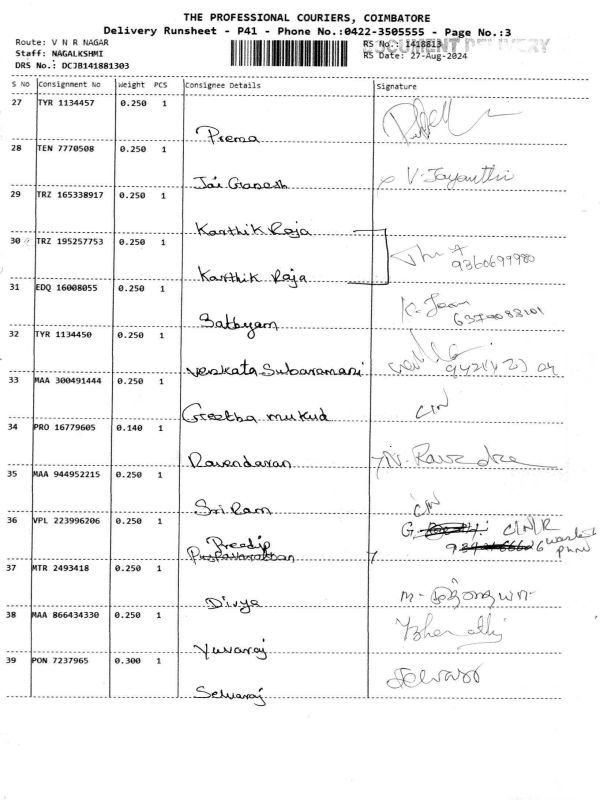 THE PROFESSIONAL COURIERS, COIMBATORE
Delivery Runsheet - P41 - Phone No.:0422-3505555 - Page No.:3
Route: V N R NAGAR
RS No.: 1418813
DOCUMENT DELIVERY
Staff: NAGALKSHMI
RS Date: 27-Aug-2024
DRS No.: DCJB141881303
S No Consignment No Weight PCS Consignee Details Signature
27 TYR 1134457 0.250 1
Prema
28 TEN 7770508 0.250 1
Jai Ganesh V. Jayanthi
29 TRZ 165338917 0.250 1
Karthik Raja
30 TRZ 195257753 0.250 1
9360699980
Karthik Raja
31 EDQ 16008055 0.250 1
Sathyam
32 TYR 1134450 0.250 1
Venkata Subaramani
33 MAA 300491444 0.250 1
Geetha mukud C/N
34 PRO 16779605 0.140 1
Ravendaran N. Ravendra
35 MAA 944952215 0.250 1
Sri Ram C/N
36 VPL 223996206 0.250 1
G. C/N/R
Preedip
37 MTR 2493418 0.250 1
Divya
38 MAA 866434330 0.250 1
Yuvaraj Bharathi
39 PON 7237965 0.300 1
Selvaraj Selvaraj